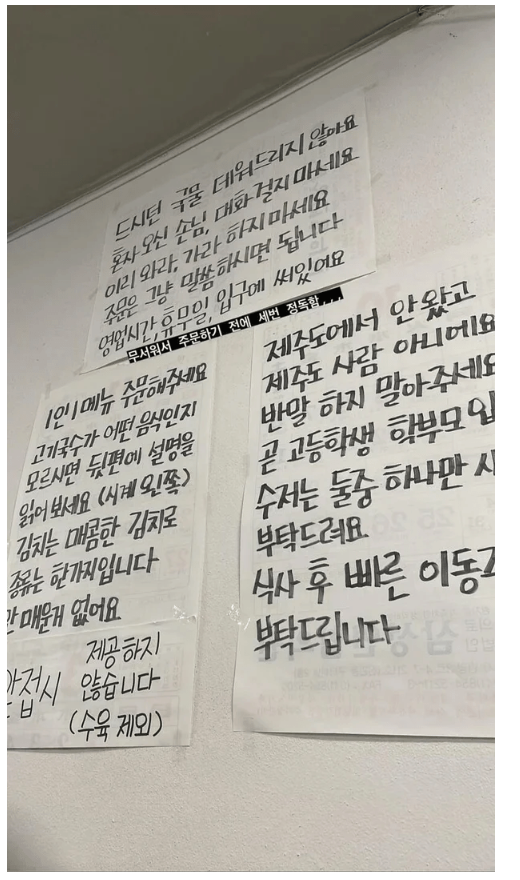 드시던 국물 데워드리지 않아요
혼자 오신 손님, 대화 걸지 마세요
이리 와라, 가라 하지 마세요
주문은 그냥 말씀하시면 됩니다
영업시간, 휴무일, 입구에 써있어요
무서워서 주문하기 전에 세번 정독함...
1인 1메뉴 주문해주세요
고기국수가 어떤 음식인지
모르시면 뒷편에 설명을
읽어보세요 (시계 왼쪽)
김치는 매콤한 김치로
종류는 한가지입니다
매운게 없어요
제공하지
않습니다
(수육 제외)
제주도에서 안 왔고
제주도 사람 아니에요
반말 하지 말아주세요
곧 고등학생 학부모
수저는 둘중 하나만
부탁드려요
식사 후 빠른
부탁드립니다